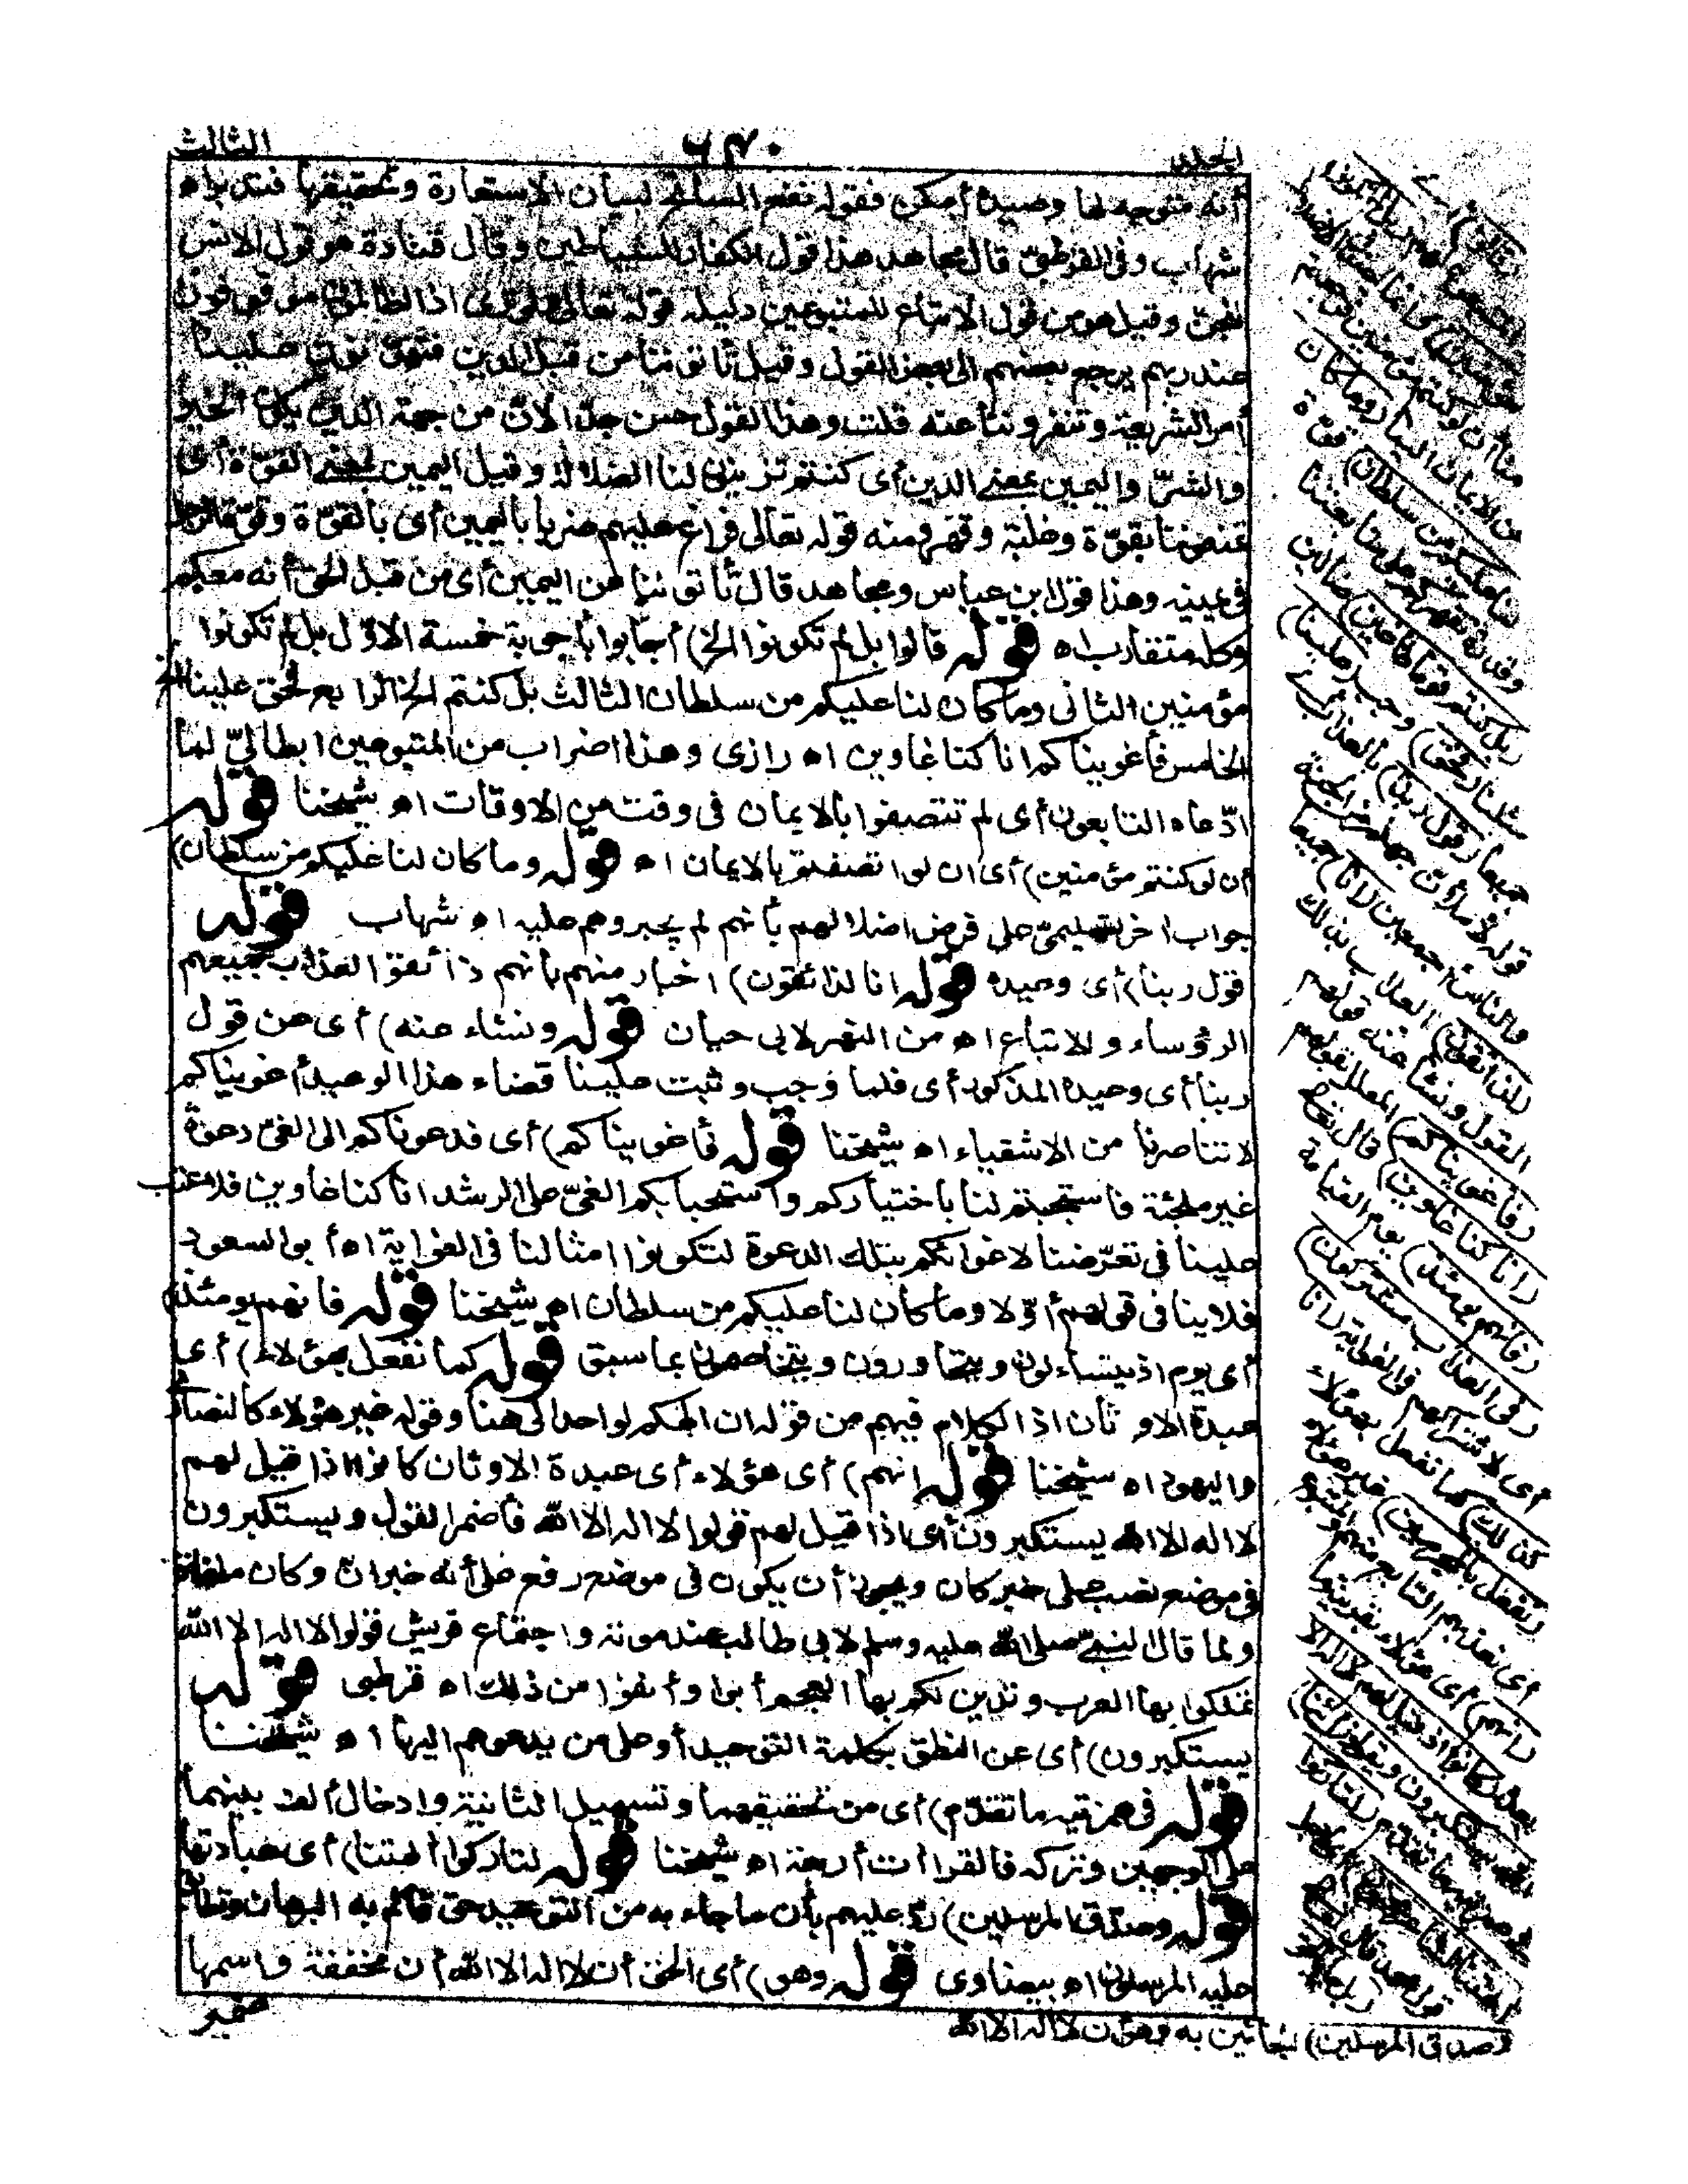 الثالث ٦٤٠ الجلد
أنه متوجه لها وصيد أمكن فقوله نفع السائح لبيان الاستعارة وتحقيقها فتدبر اه
شهاب وفى القرطبى قال مجاهد هذا قول الكفار للشياطين وقال قتادة هو قول الانس
للجن وقيل هو من قول الاتباع للمتبوعين دليله قوله تعالى ولو ترى اذ الظالمون موقوفون
عند ربهم يرجع بعضهم الى بعض القول وقيل تأتوننا من قبل الدين فتهونون علينا
أمر الشريعة وتنفروننا عنه قلت وهذا القول حسن جدا لان من جهة الدين يكون الخير
والشر واليمين بمعنى الدين أى كنتم تزينون لنا الضلالة وقيل اليمين بمعنى القوة أى
تمنعوننا بقوة وغلبة وقهر ومنه قوله تعالى فراغ عليهم ضربا باليمين أى بالقوة وقوة الرجل
فى يمينه وهذا قول ابن عباس ومجاهد قال تأتوننا عن اليمين أى من قبل الحق أنه معكم
وكله متقارب اه قوله قالوا بل لم تكونوا الخ) أجابوا بأجوبة خمسة الاول بل لم تكونوا
مؤمنين الثانى وما كان لنا عليكم من سلطان الثالث بل كنتم الخ الرابع فحق علينا الخ
الخامس فأغويناكم انا كنا غاوين اه رازى وهذا اضراب من المتبوعين ابطالىّ لما
ادّعاه التابعون أى لم تتصفوا بالايمان فى وقت من الاوقات اه شيخنا قوله
أن لو كنتم مؤمنين) أى ان لو اتصفتم بالايمان اه قوله وما كان لنا عليكم من سلطان)
جواب اخر تسليمى على فرض اضلالهم بأنهم لم يجبروهم عليه اه شهاب قوله
قول ربنا) أى وعيده قوله انا لذائقون) اخبار منهم بأنهم ذائقو العذاب جميعهم
الرؤساء والاتباع اه من النهر لابى حيان قوله ونشاء عنه) أى عن قول
ربنا أى وعيده المذكور أى فلما وجب وثبت علينا قضاء هذا الوعيد أغويناكم
لا تناصرنا من الاشقياء اه شيخنا قوله فأغويناكم) أى فدعوناكم الى الغى دعوة
غير ملجئة فاستجبتم لنا باختياركم واستحبابكم الغىّ على الرشد انا كنا غاوين فلا عتب
علينا فى تعرّضنا لاغوائكم بتلك الدعوة لتكونوا امثالنا فى الغواية اه أبو السعود
فلا ينافى قولهم أوّلا وما كان لنا عليكم من سلطان اه شيخنا قوله فانهم يومئذ)
أى يوم اذ يتساءلون ويتحاورون ويتخاصمون بما سبق قوله كما نفعل بهؤلاء) أى
عبدة الاوثان اذ الكلام فيهم من قوله ان الهكم لواحد الى هنا وقوله غير هؤلاء كالنصارى
واليهود اه شيخنا قوله انهم) أى هؤلاء أى عبدة الاوثان كانوا اذا قيل لهم
لا اله الا الله يستكبرون أى اذا قيل لهم قولوا لا اله الا الله فأضمر القول ويستكبرون
فى موضع نصب على خبر كان ويجوز أن يكون فى موضع رفع على أنه خبر ان وكان ملغاة
ولما قال النبىّ صلى الله عليه وسلم لابى طالب عند موته واجتماع قريش قولوا لا اله الا الله
تملكوا بها العرب وتدين لكم بها العجم أبوا وأنفوا من ذلك اه قرطبى قوله
يستكبرون) أى عن النطق بكلمة التوحيد أو على من يدعوهم اليها اه شيخنا
قوله فى همزتيه ما تقدّم) أى من تحقيقهما وتسهيل الثانية وادخال ألف بينهما
على الوجهين وتركه فالقراآت أربعة اه شيخنا قوله لتاركوا ألهتنا) أى عبادتها
قوله وصدّق المرسلين) ردّ عليهم بأن ما جاء به من التوحيد حق قائم به البرهان وتطابق
عليه المرسلون اه بيضاوى قوله وهو) أى الحق أن لا اله الا الله أن مخففة واسمها
ضمير
منا أن لو كنتم مؤمنين
من الايمان الينا (وما كان
لنا عليكم من سلطان) قوة
وقدرة تقهركم على متابعتنا
(بل كنتم قوما طاغين) ضالين
مثلنا (فحق) وجب (علينا)
جميعا (قول ربنا) بالعذاب أى
قوله لأملأن جهنم من الجنة
والناس أجمعين (انا) جميعا
(لذائقون) العذاب بذلك
القول ونشأ عنه قولهم
(فأغويناكم) المعلل بقولهم
(انا كنا غاوين) قال تعالى
(فانهم يومئذ) يوم القيامة
(فى العذاب مشتركون)
أى لاشتراكهم فى الغواية (انا
كذلك) كما نفعل بهؤلاء
(نفعل بالمجرمين) غير هؤلاء
أى نعذبهم التابع منهم والمتبوع
(انهم) أى هؤلاء بقرينة ما
بعد (كانوا اذا قيل لهم لا اله الا
الله يستكبرون ويقولون أئنا)
فى همزتيه ما تقدم (لتاركوا
(صدق المرسلين) الجائين به وهو أن لا اله الا الله